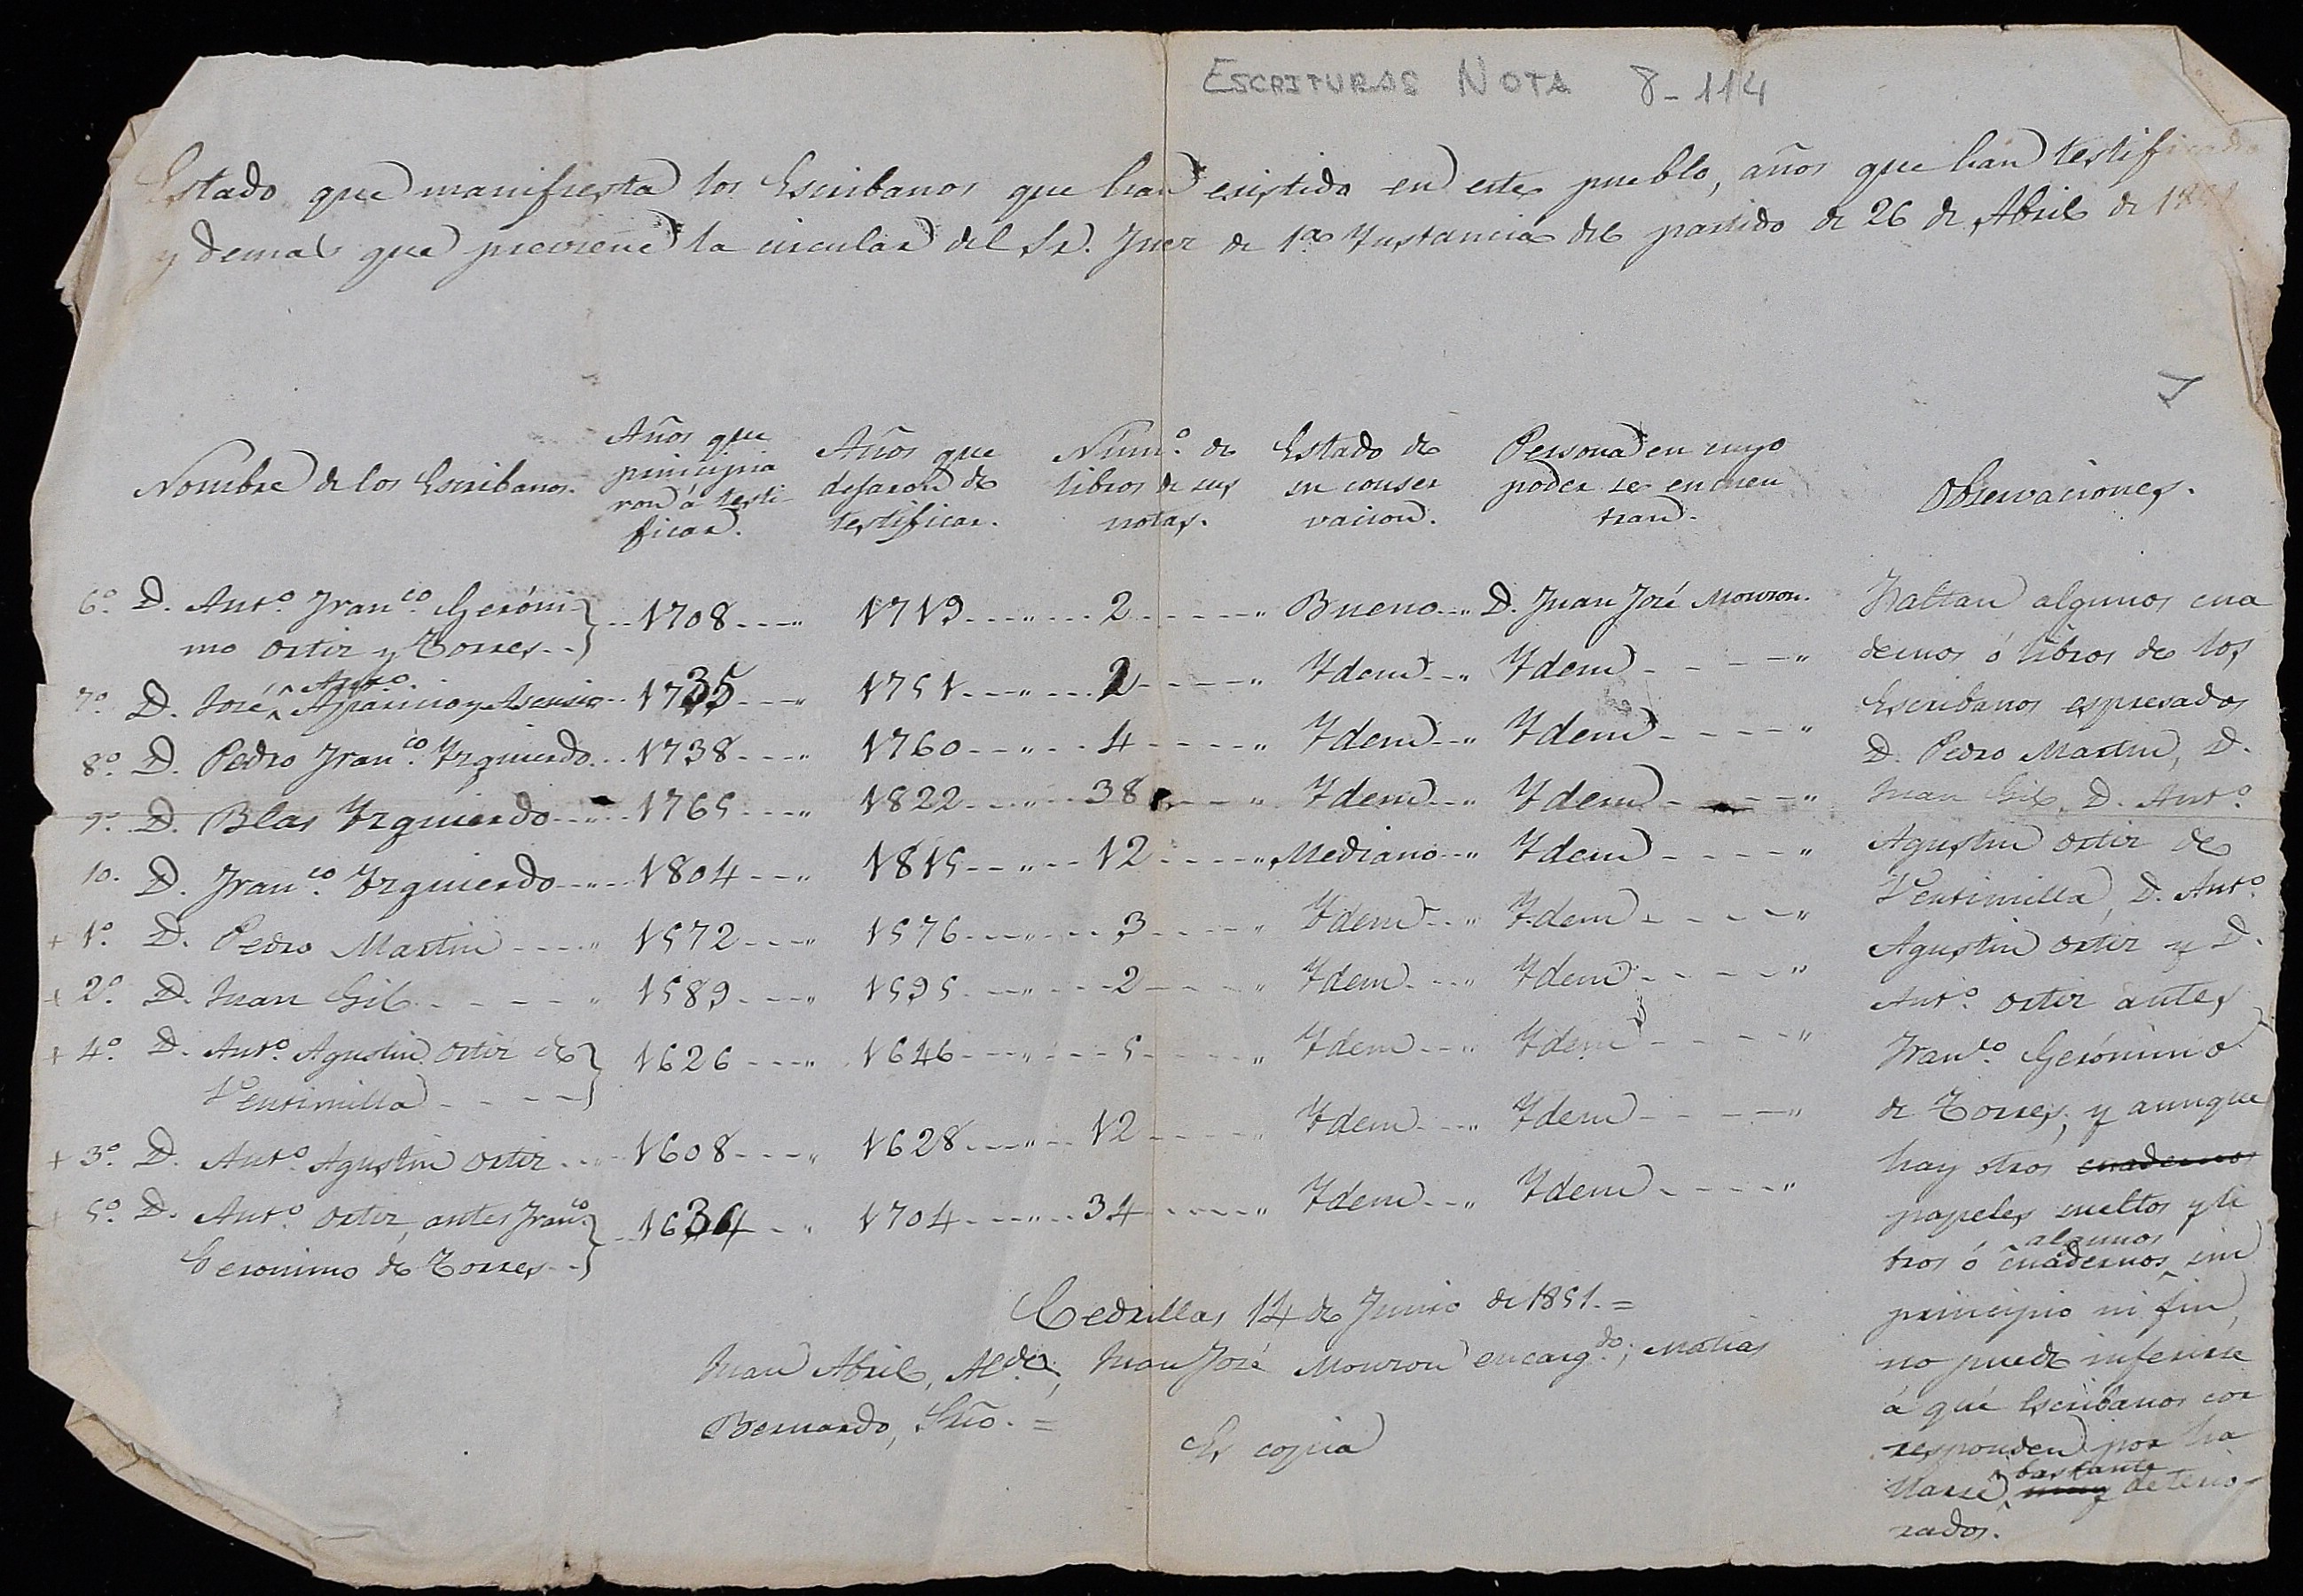 ESCRITURAS NOTA 8-114
Estado que manifiesta los Escribanos que han existido en este pueblo, años que han testificado
y demas que previene la circular del Sr. Juez de 1ª Ynstancia del partido de 26 de Abril de 1851
Nombre de los Escribanos. Años que principiaron á testificar. Años que dejaron de testificar. Núm.º de libros de sus notas. Estado de su conservacion. Persona en cuyo poder se encuentran. Observaciones.
6º. D. Antº. Franco. Geróni-
mo Ortiz y Torres-- 1708 1719 2 Bueno D. Juan José Monzon.
7º. D. José Antº. Aparicio y Asensio 1735 1751 2 Ydem Ydem
8º. D. Pedro Franco. Yzquierdo 1738 1760 4 Ydem Ydem
9º. D. Blas Yzquierdo 1765 1822 38 Ydem Ydem
10. D. Franco. Yzquierdo 1804 1815 12 Mediano Ydem
+ 1º. D. Pedro Martin 1572 1576 3 Ydem Ydem
+ 2º. D. Juan Gil 1589 1595 2 Ydem Ydem
+ 4º. D. Antº. Agustin Ortiz de
Ventimilla 1626 1646 5 Ydem Ydem
+ 3º. D. Antº. Agustin Ortiz 1608 1628 12 Ydem Ydem
+ 5º. D. Antº. Ortiz, antes Franco.
Geronimo de Torres-- 1634 1704 34 Ydem Ydem
Faltan algunos cua
dernos ó libros de los
Escribanos espresados
D. Pedro Martin, D.
Juan Gil, D. Antº.
Agustin Ortiz de
Ventimilla, D. Antº.
Agustin Ortiz y D.
Antº. Ortiz antes
Franco. Gerónimo
de Torres; y aunque
hay otros cuadernos
papeles sueltos y li
bros ó cuadernos algunos sin
principio ni fin,
no puede inferirse
á qué Escribanos cor
responden por ha
llarse muy bastante deterio-
rados.
Cedrillas 14 de Junio de 1851.=
Juan Abril, Alde., Juan José Monzon encargdo; Matias
Bernardo, Srio. =
Es copia